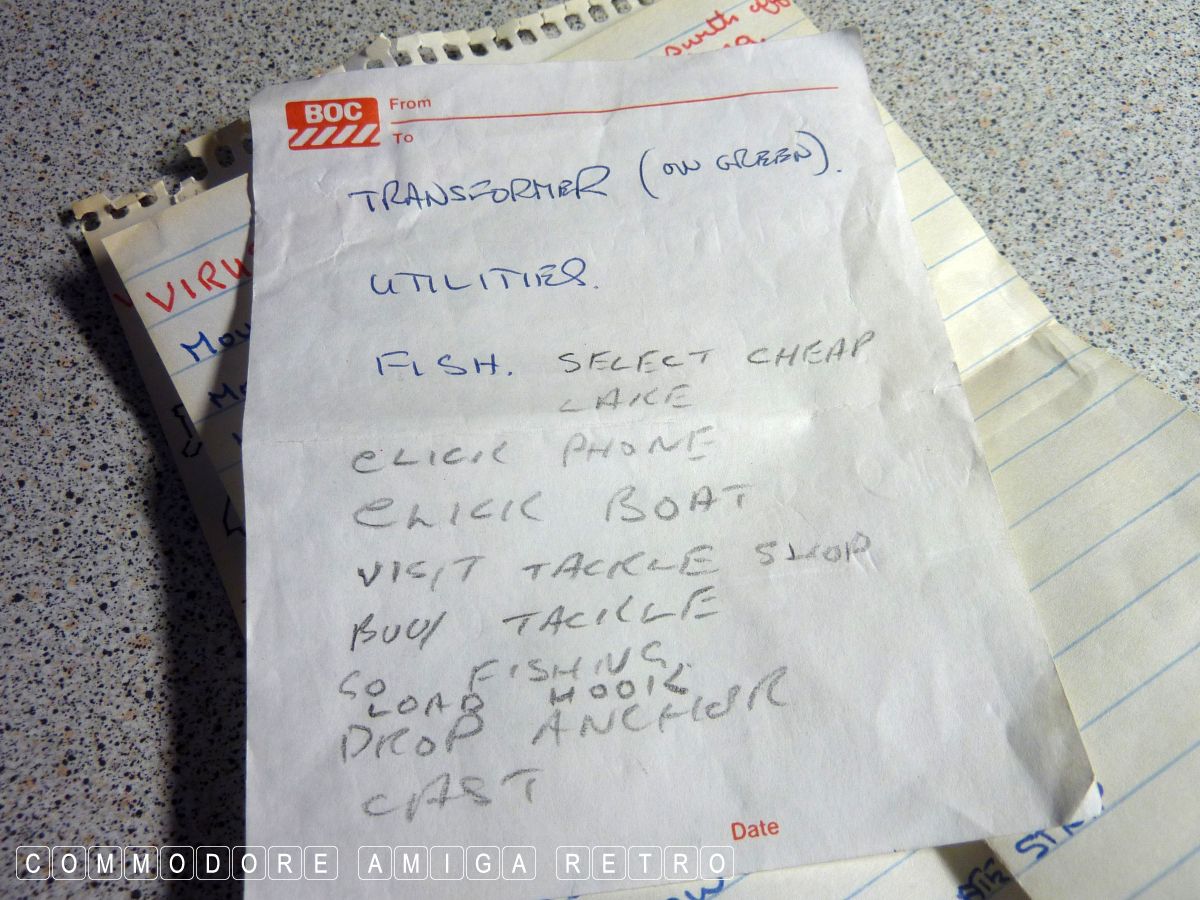 swith off
BOC From
To
TRANSFORMER (ON GREEN).
VIRUS
UTILITIES.
FISH. SELECT CHEAP
LAKE
CLICK PHONE
CLICK BOAT
VISIT TACKLE SHOP
BUY TACKLE
GO FISHING
LOAD HOOK
DROP ANCHOR
CAST
Date
COMMODORE AMIGA RETRO